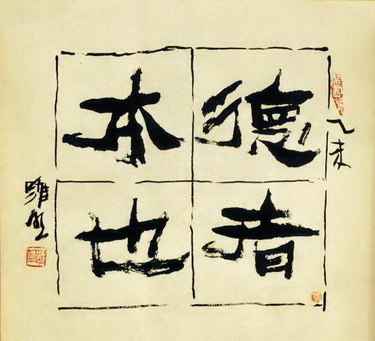 乙未
德者
本也